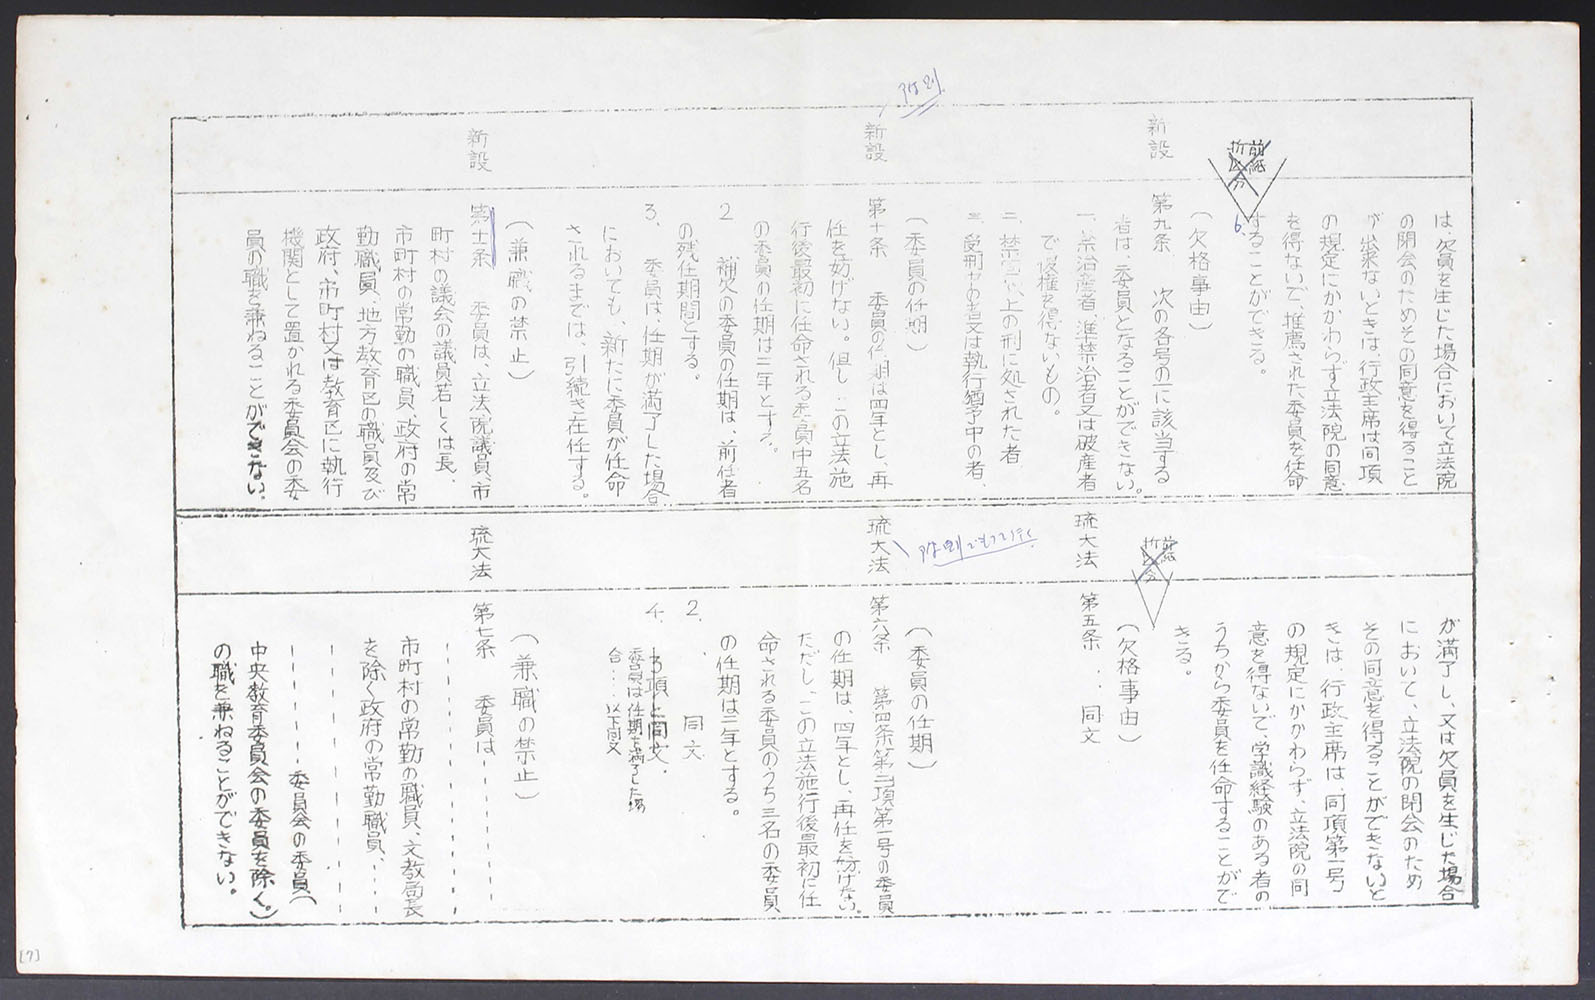 新設
新設
新設
前紙
折込分
は、欠員を生じた場合において立法院
の閉会のためその同意を得ること
が出来ないときは、行政主席は同項
の規定にかかわらず立法院の同意
を得ないで、推薦された委員を任命
6.
することができる。
(欠格事由)
第九条 次の各号の一に該当する
者は、委員となることができない。
一、禁治産者、準禁治者又は破産者
で復権を得ないもの。
二、禁錮以上の刑に処された者
三、受刑中の者又は執行猶予中の者、
(委員の任期)
第十条 委員の任期は四年とし、再
任を妨げない。但し、この立法施
行後最初に任命される委員中五名
の委員の任期は二年とする。
2 補欠の委員の任期は、前任者
の残任期間とする。
3. 委員は、任期が満了した場合
においても、新たに委員が任命
されるまでは、引続き在任する。
(兼職の禁止)
第十一条 委員は、立法院議員、市
町村の議会の議員若しくは長、
市町村の常勤の職員、政府の常
勤職員、地方教育区の職員及び
政府、市町村又は教育区に執行
機関として置かれる委員会の委
員の職を兼ねることができない。
琉大法
琉大法
琉大法
前紙
折込分
が満了し、又は欠員を生じた場合
において、立法院の閉会のため
その同意を得ることができないと
きは、行政主席は、同項第一号
の規定にかかわらず、立法院の同
意を得ないで、学識経験のある者の
うちから委員を任命することがで
きる。
(欠格事由)
第五条 . . 同文
(委員の任期)
第六条 第四条第二項第一号の委員
の任期は、四年とし、再任を妨げない。
ただし、この立法施行後最初に任
命される委員のうち三名の委員
の任期は二年とする。
2. . 同文
4. 3項と同文.
委員は任期を満了した場
合...以下同文
(兼職の禁止)
第七条 委員は
市町村の常勤の職員、文教局長
を除く政府の常勤職員、
委員会の委員(
中央教育委員会の委員を除く。)
の職を兼ねることができない。
[7]